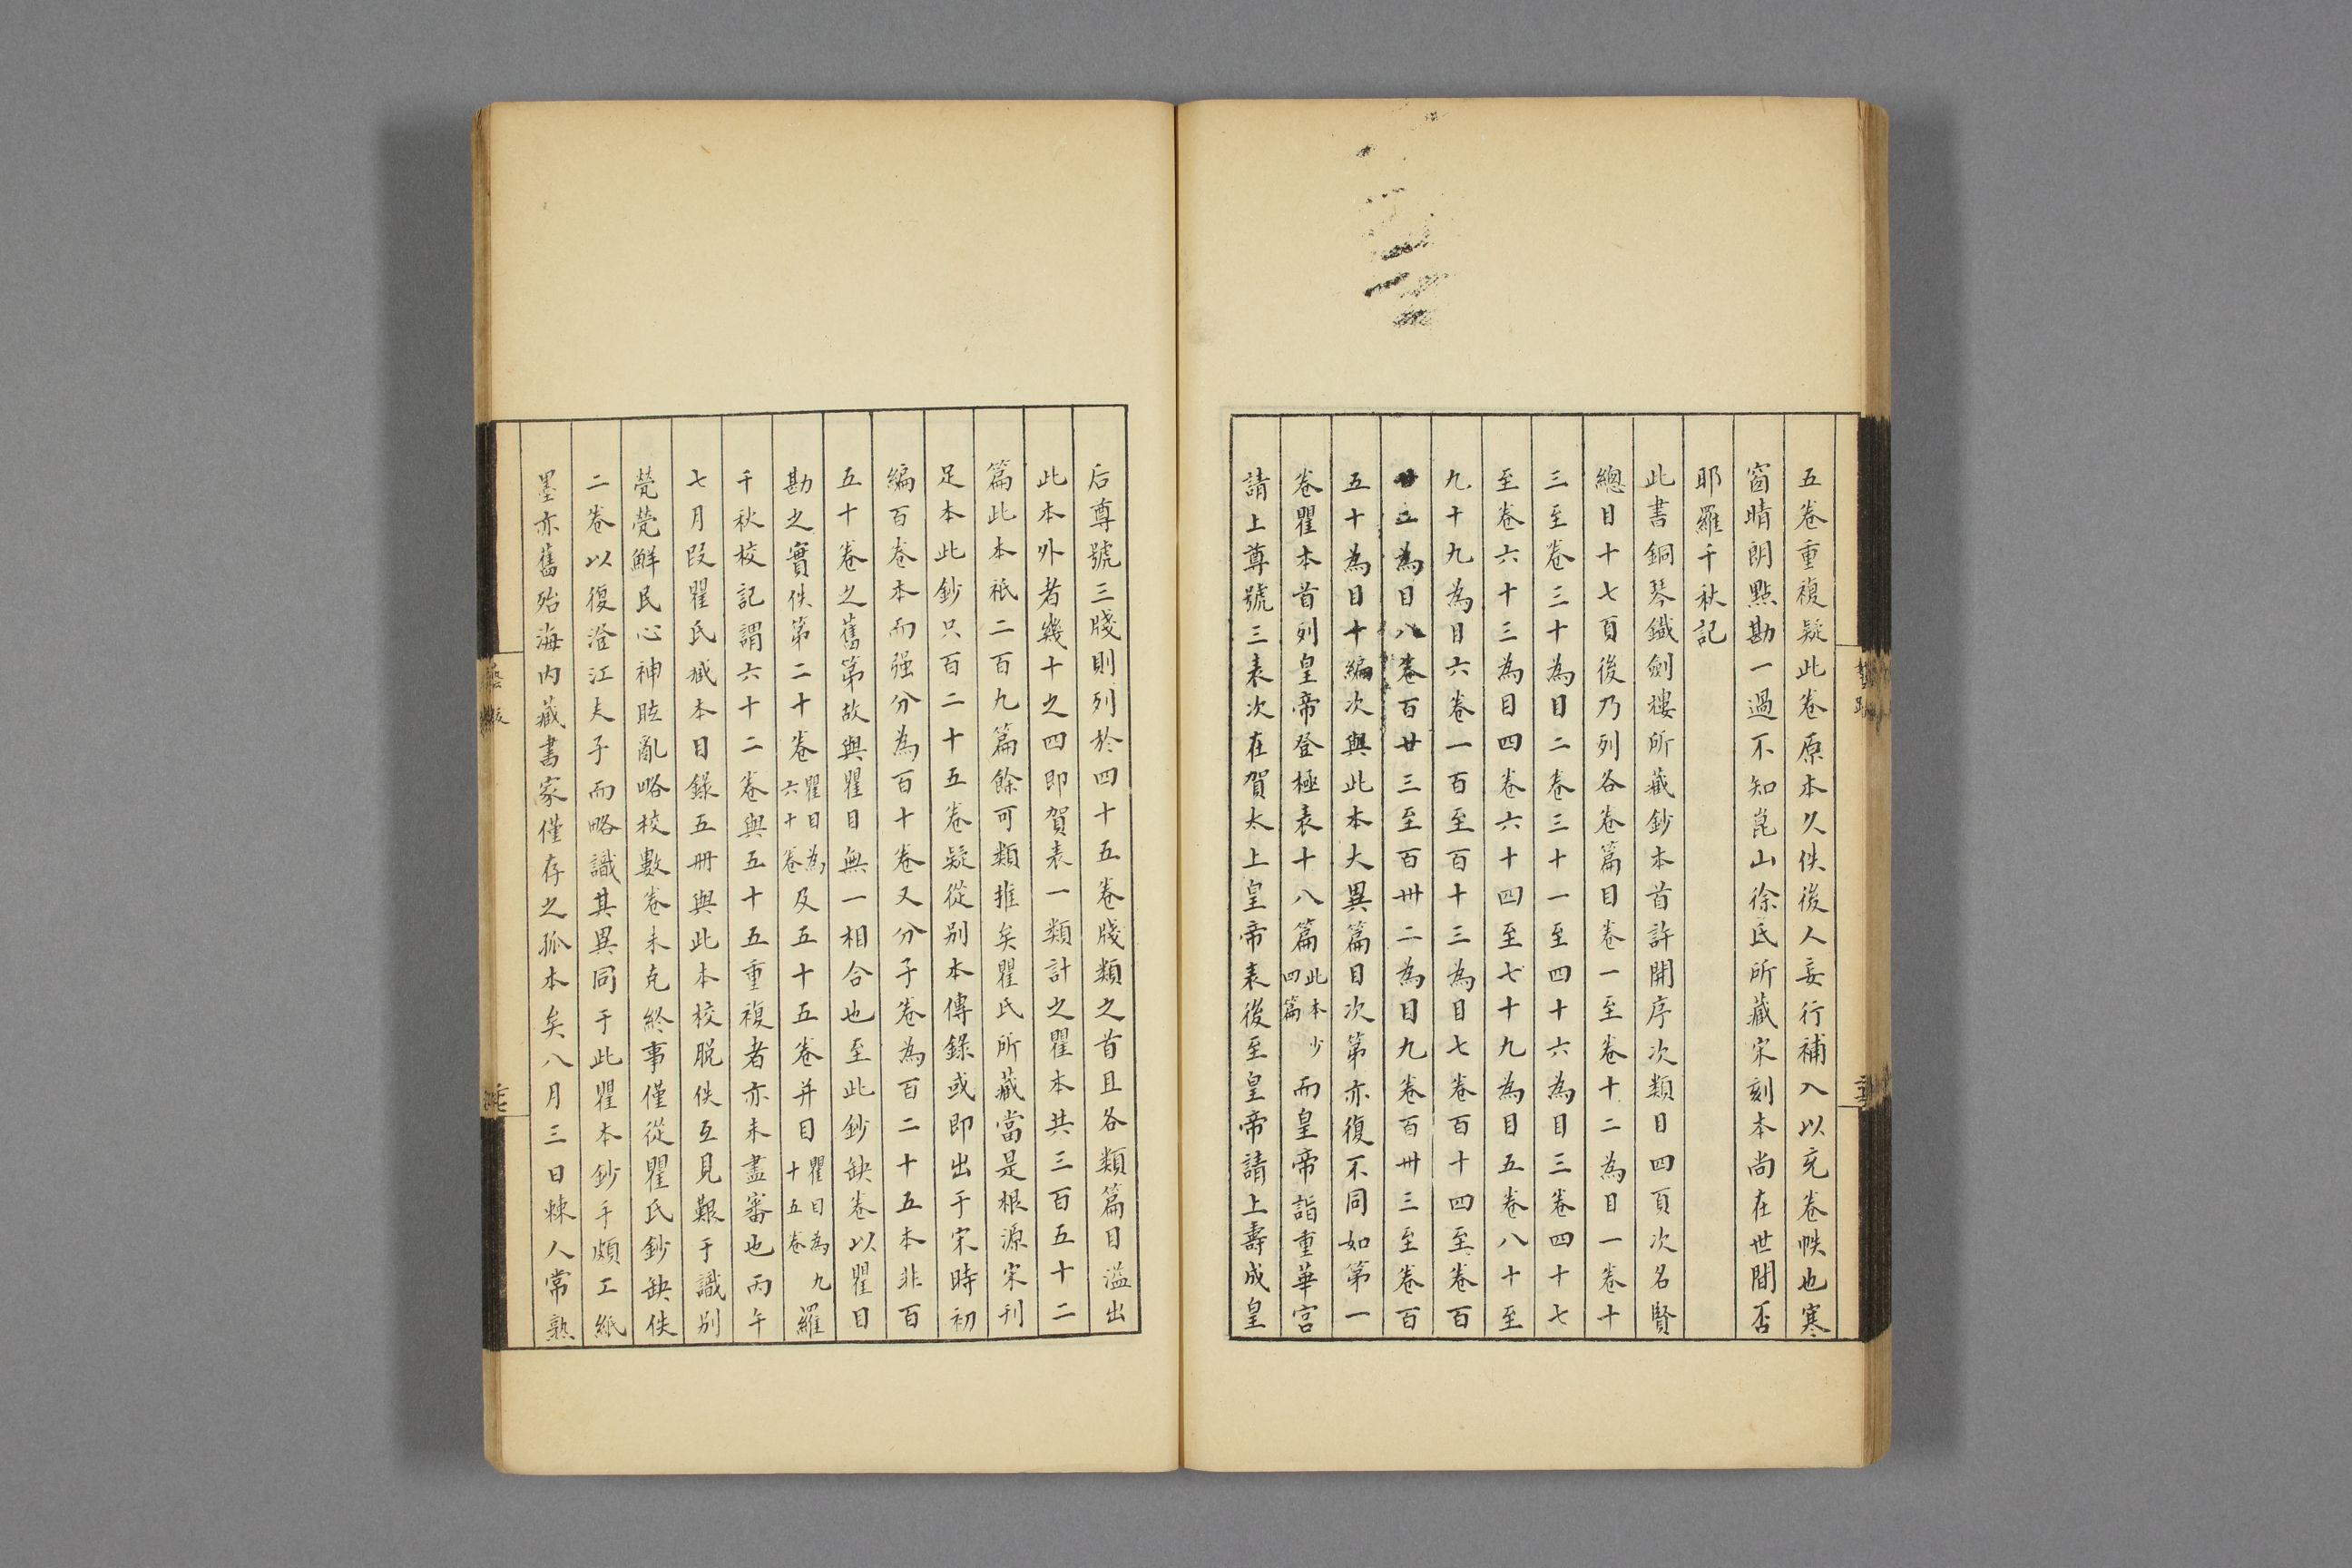 五卷重複疑此卷原本久佚後人妄行補入以充卷帙也寒
窗晴朗點勘一過不知崑山徐氏所藏宋刻本尚在世間否
耶羅千秋記
此書銅琴鐵劍樓所藏鈔本首許開序次類目四頁次名賢
總目十七頁後乃列各卷篇目卷一至卷十二為目一卷十
三至卷三十為目二卷三十一至四十六為目三卷四十七
至卷六十三為目四卷六十四至七十九為目五卷八十至
九十九為目六卷一百至百十三為目七卷百十四至卷百
廿二為目八卷百廿三至百卅二為目九卷百卅三至卷百
五十為目十編次與此本大異篇目次第亦復不同如第一
卷瞿本首列皇帝登極表十八篇此本少四篇而皇帝詣重華宮
請上尊號三表次在賀太上皇帝表後至皇帝請上壽成皇
后尊號三牋則列於四十五卷牋類之首且各類篇目溢出
此本外者幾十之四即賀表一類計之瞿本共三百五十二
篇此本祇二百九篇餘可類推矣瞿氏所藏當是根源宋刊
足本此鈔只百二十五卷疑從別本傳錄或即出于宋時初
編百卷本而强分為百十卷又分子卷為百二十五本非百
五十卷之舊第故與瞿目無一相合也至此鈔缺卷以瞿目
勘之實佚第二十卷瞿目為六十卷及五十五卷并目瞿目為九十五卷羅
千秋校記謂六十二卷與五十五重複者亦未盡審也丙午
七月段瞿氏臧本目錄五冊與此本校脫佚互見艱于識別
煢煢鮮民心神眊亂略校數卷未克終事僅從瞿氏鈔缺佚
二卷以復澄江夫子而略識其異同于此瞿本鈔手頗工紙
墨亦舊殆海內藏書家僅存之孤本矣八月三日棘人常熟